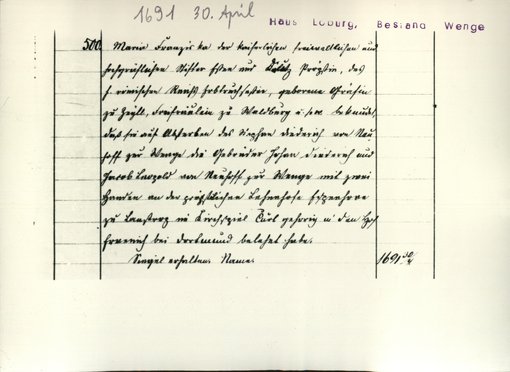 1691 30. April
Haus Loburg, Bestand Wenge
500. Maria Franziska der kaiserlichen freiweltlichen und
hochgräflichen Stifter Essen und Pröpstin, des
h. römischen Reichs Erbtruchsessin, geborene Gräfin
zu Zeyll, Freifräulein zu Waldburg bekundet,
daß sie auf Absterben des Stephan Diederich von Neu
hoff zur Wenge die Gebrüder Johan Diederich und
Jacob Leopold von Neuhoff zur Wenge mit zwei
Händen an der gräflichen Lehenhofe
zu Lanstrop im Kirchspiel Cürl gehörig in den Hof
bei Dortmund belehnt habe.
Siegel erhalten. Name.
1691 30/4